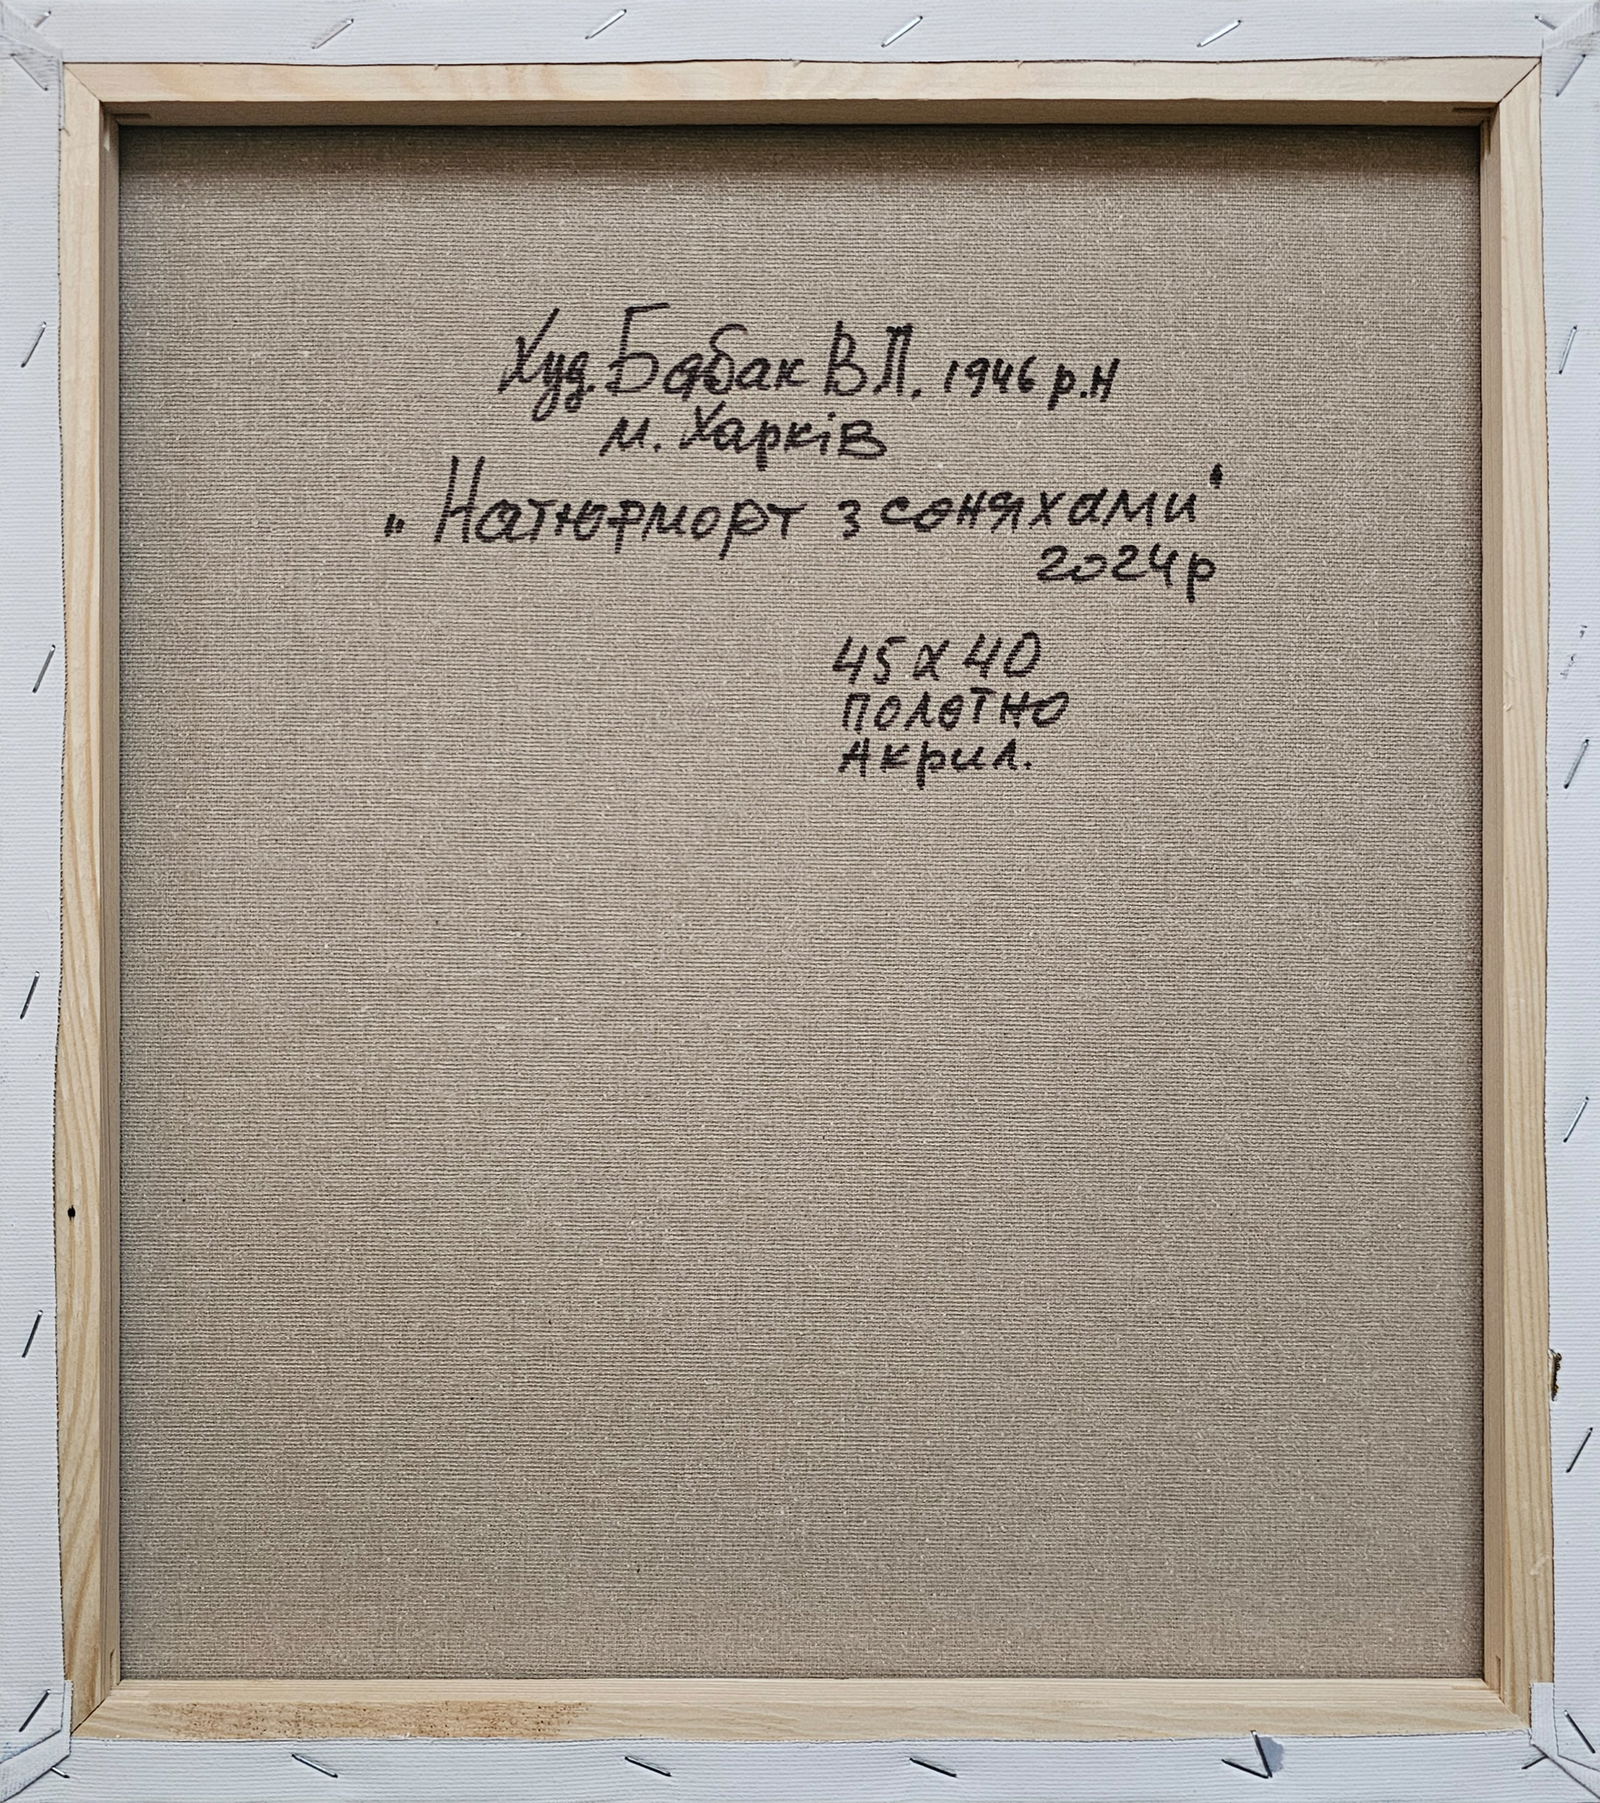 Худ. Бабак В П. 1946 р.н
м. Харків
„Натюрморт з соняхами"
2024р
45 х 40
полотно
Акрил.